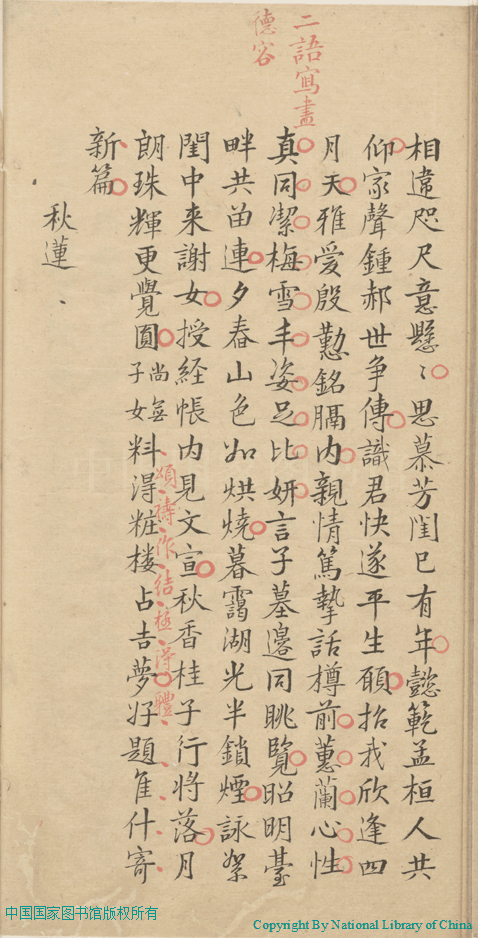 二語寫盡
德容
相違咫尺意懸〻思慕芳閨已有年懿範孟桓人共
仰家聲鍾郝世争傳識君快遂平生願招我欣逢四
月天雅愛殷懃銘膈内親情篤摯話樽前蕙蘭心性
真同潔梅雪丰姿足比妍言子墓邊同眺覽昭明臺
畔共畄連夕舂山色如烘燒暮靄湖光半鎖煙詠絮
閨中来謝女授経帳内見文宣秋香桂子行將落月
頌禱作結極淂體
朗珠輝更覺圓尚無子女料淂粧樓占吉夢好題隹什寄
新篇
秋蓮
中国国家图书馆版权所有
Copyright By National Library of China